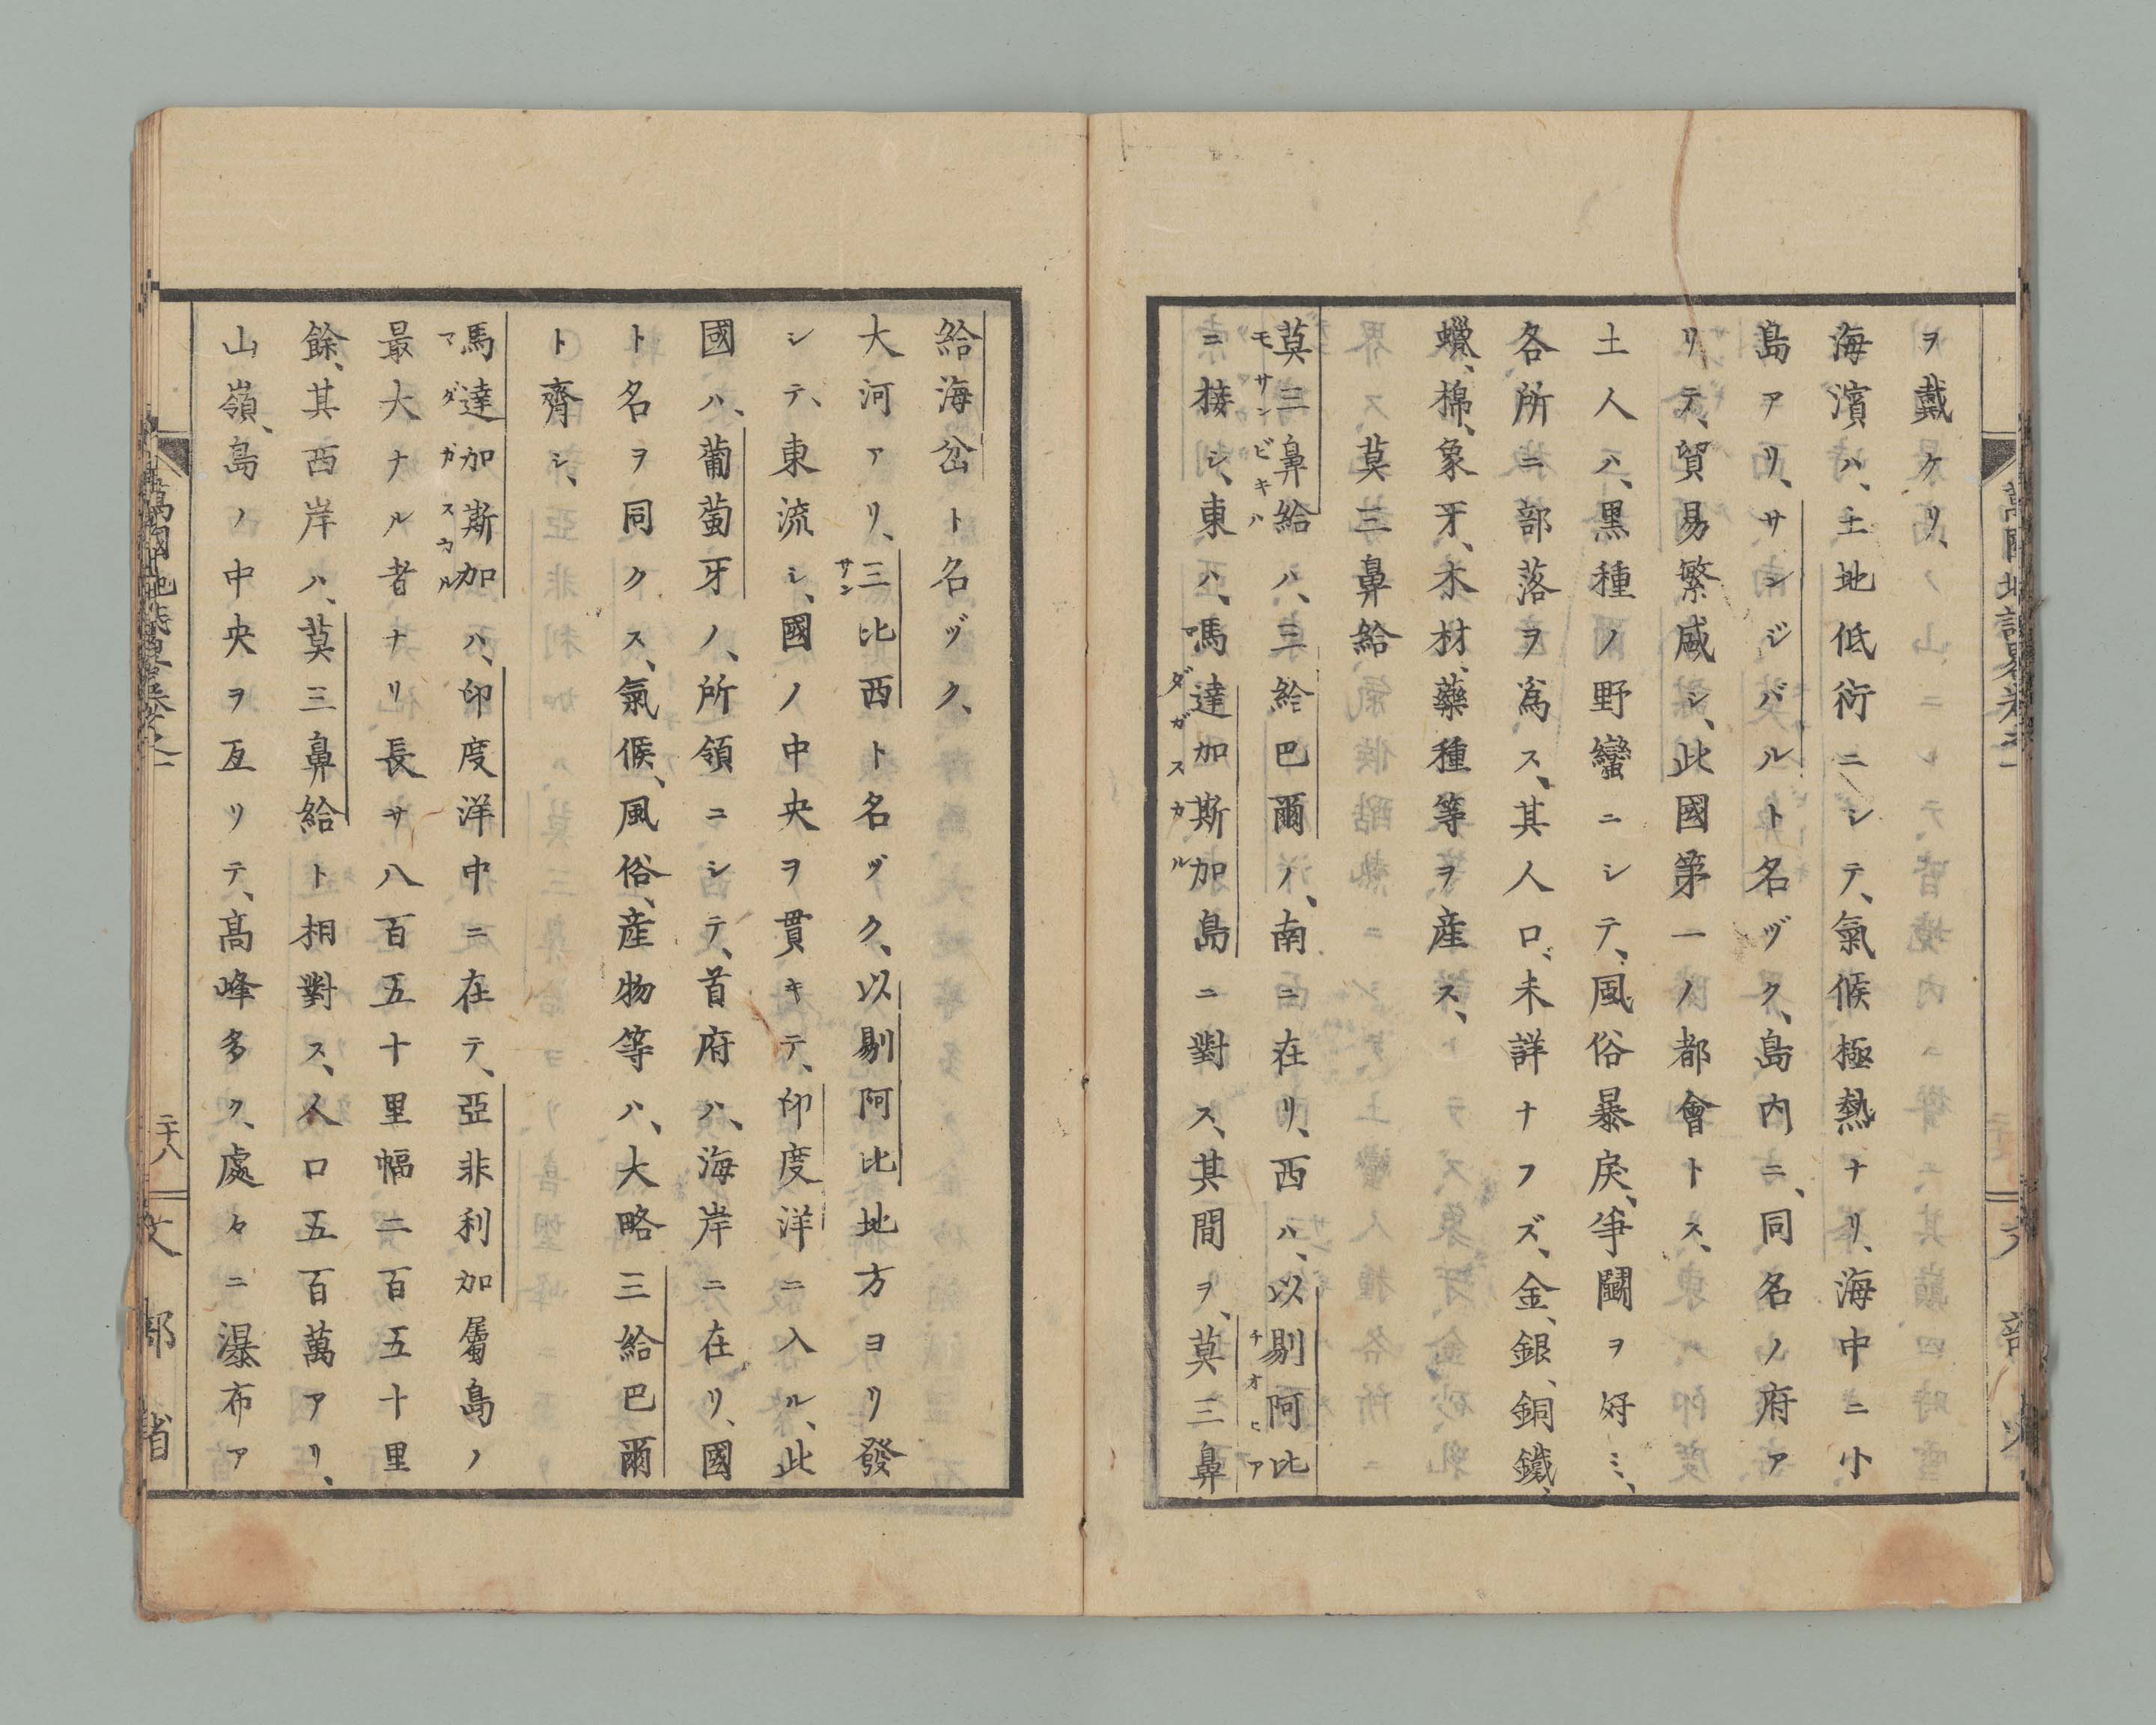 ヲ戴ケリ、
海濱ハ、土地低衍ニシテ、氣候極熱ナリ、海中ニ小
島アリ、サンジバルト名ヅク、島内ニ、同名ノ府ア
リテ、貿易繁盛シ、此國第一ノ都會トス、
土人ハ、黒種ノ野蠻ニシテ、風俗暴戾、爭鬪ヲ好ミ、
各所ニ部落ヲ爲ス、其人口、未詳ナラズ、金、銀、銅、鐵、
蠟、棉、象牙、木材、藥種等ヲ産ス、
莫三鼻給
莫三鼻給ハ、三給巴爾ノ、南ニ在リ、西ハ、以剔阿比
モサンビキハ
チオヒア
ニ接シ、東ハ、嗎達加斯加島ニ對ス、其間ヲ、莫三鼻
ダガスカル
給海峃ト名ヅク、
大河アリ、三比西ト名ヅク、以剔阿比地方ヨリ發
サン
シテ、東流シ、國ノ中央ヲ貫キテ、印度洋ニ入ル、此
國ハ、葡萄牙ノ、所領ニシテ、首府ハ、海岸ニ在リ、國
ト名ヲ同クス、氣候、風俗、産物等ハ、大略三給巴爾
ト齊シ、
馬達加斯加ハ、印度洋中ニ在テ、亞非利加屬島ノ
マダガスカル
最大ナル者ナリ長サ八百五十里幅二百五十里
餘、其西岸ハ、莫三鼻給ト相對ス、人口五百萬アリ、
山嶺、島ノ中央ヲ亙リテ、高峰多ク、處々ニ瀑布ア
萬國地誌畧卷之二
二十八
文部省